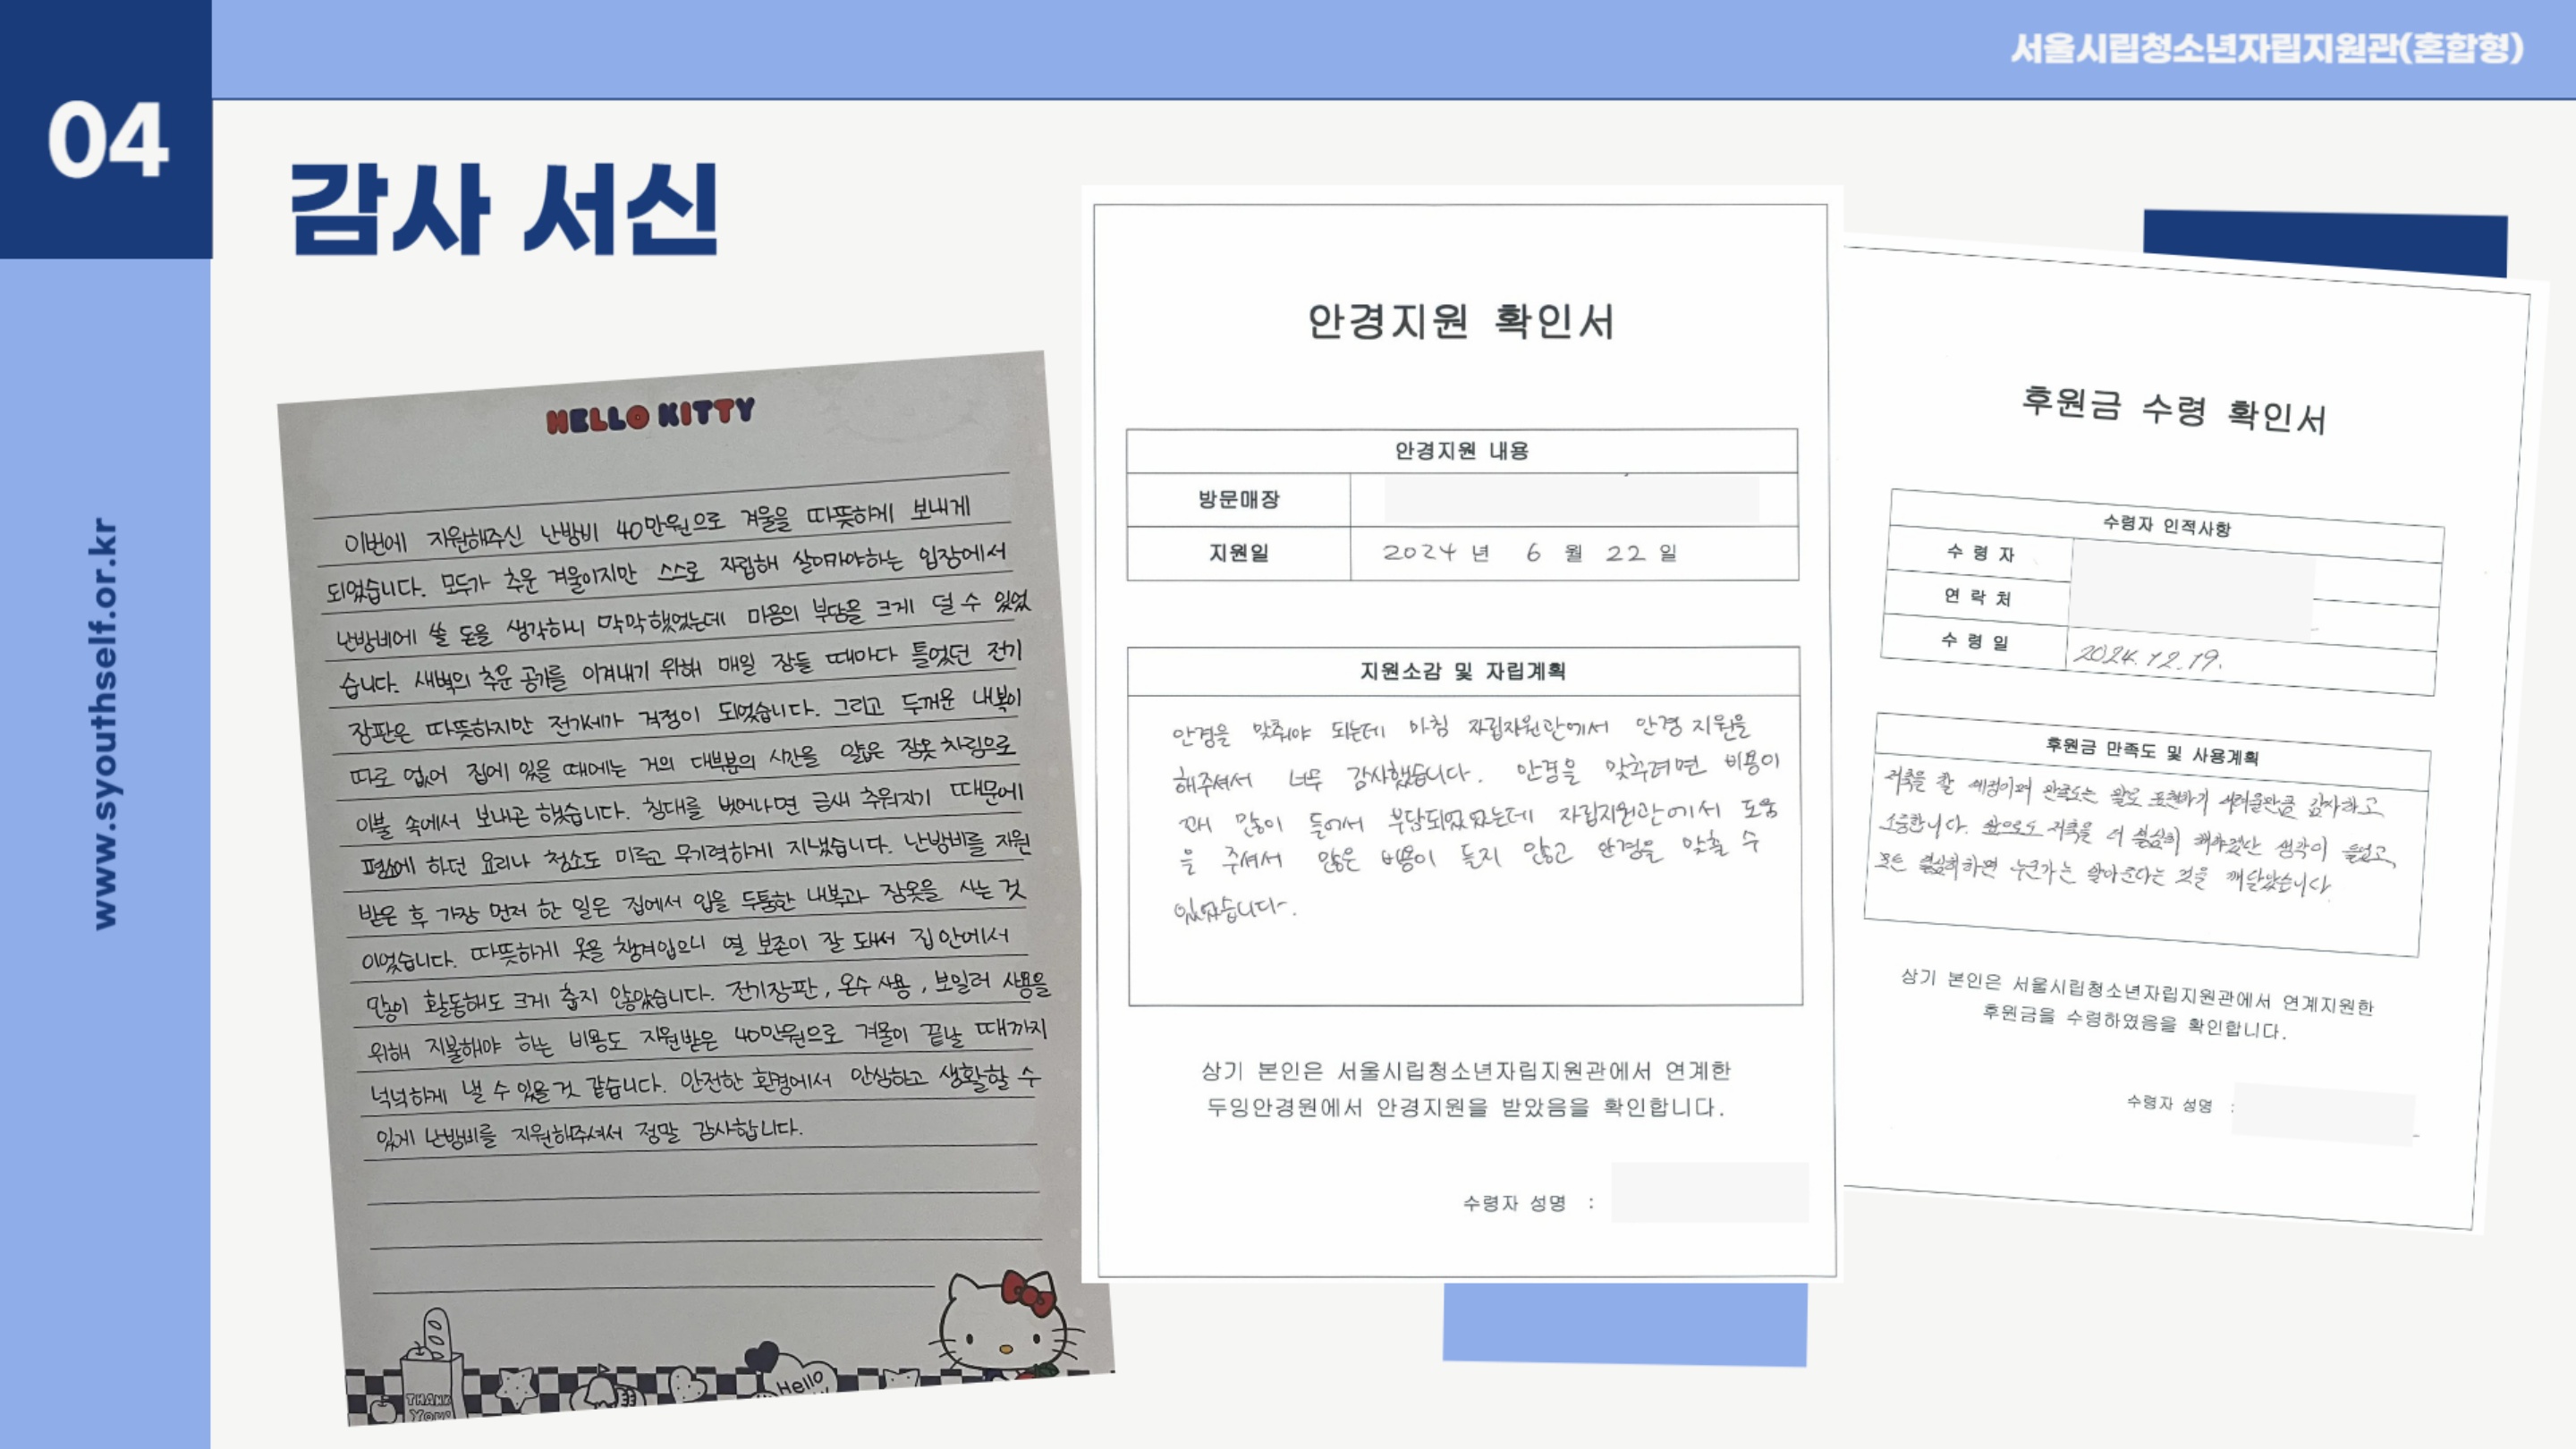 04
서울시립청소년자립지원관(혼합형)
www.syouthself.or.kr
감사 서신
HELLO KITTY
이번에 지원해주신 난방비 40만원으로 겨울을 따뜻하게 보내게
되었습니다. 모두가 추운 겨울이지만 스스로 자립해 살아가야하는 입장에서
난방비에 쓸 돈을 생각하니 막막했었는데 마음의 부담을 크게 덜 수 있었
습니다. 새벽의 추운 공기를 이겨내기 위해 매일 잠들 때마다 틀었던 전기
장판은 따뜻하지만 전기세가 걱정이 되었습니다. 그리고 두꺼운 내복이
따로 없어 집에 있을 때에는 거의 대부분의 시간을 얇은 잠옷 차림으로
이불 속에서 보내곤 했습니다. 침대를 벗어나면 금새 추워지기 때문에
평소에 하던 요리나 청소도 미루고 무기력하게 지냈습니다. 난방비를 지원
받은 후 가장 먼저 한 일은 집에서 입을 두툼한 내복과 잠옷을 사는 것
이었습니다. 따뜻하게 옷을 챙겨입으니 열 보존이 잘 돼서 집 안에서
많이 활동해도 크게 춥지 않았습니다. 전기장판, 온수 사용, 보일러 사용을
위해 지불해야 하는 비용도 지원받은 40만원으로 겨울이 끝날 때까지
넉넉하게 낼 수 있을 것 같습니다. 안전한 환경에서 안심하고 생활할 수
있게 난방비를 지원해주셔서 정말 감사합니다.
THANK
YOU!
Hello
안경지원 확인서
안경지원 내용
방문매장
지원일 2024 년 6 월 22 일
지원소감 및 자립계획
안경을 맞춰야 되는데 마침 자립지원관에서 안경 지원을
해주셔서 너무 감사했습니다. 안경을 맞추려면 비용이
꽤 많이 들어서 부담되었었는데 자립지원관에서 도움
을 주셔서 많은 비용이 들지 않고 안경을 맞출 수
있었습니다.
상기 본인은 서울시립청소년자립지원관에서 연계한
두잉안경원에서 안경지원을 받았음을 확인합니다.
수령자 성명 :
후원금 수령 확인서
수령자 인적사항
수 령 자
연 락 처
수 령 일 2024. 12. 19.
후원금 만족도 및 사용계획
저축을 할 예정이며 만족도는 말로 표현하기 어려울만큼 감사하고
소중합니다. 앞으로도 저축을 더 열심히 해야겠단 생각이 들었고,
모든 열심히하면 누군가는 알아준다는 것을 깨달았습니다.
상기 본인은 서울시립청소년자립지원관에서 연계지원한
후원금을 수령하였음을 확인합니다.
수령자 성명 :